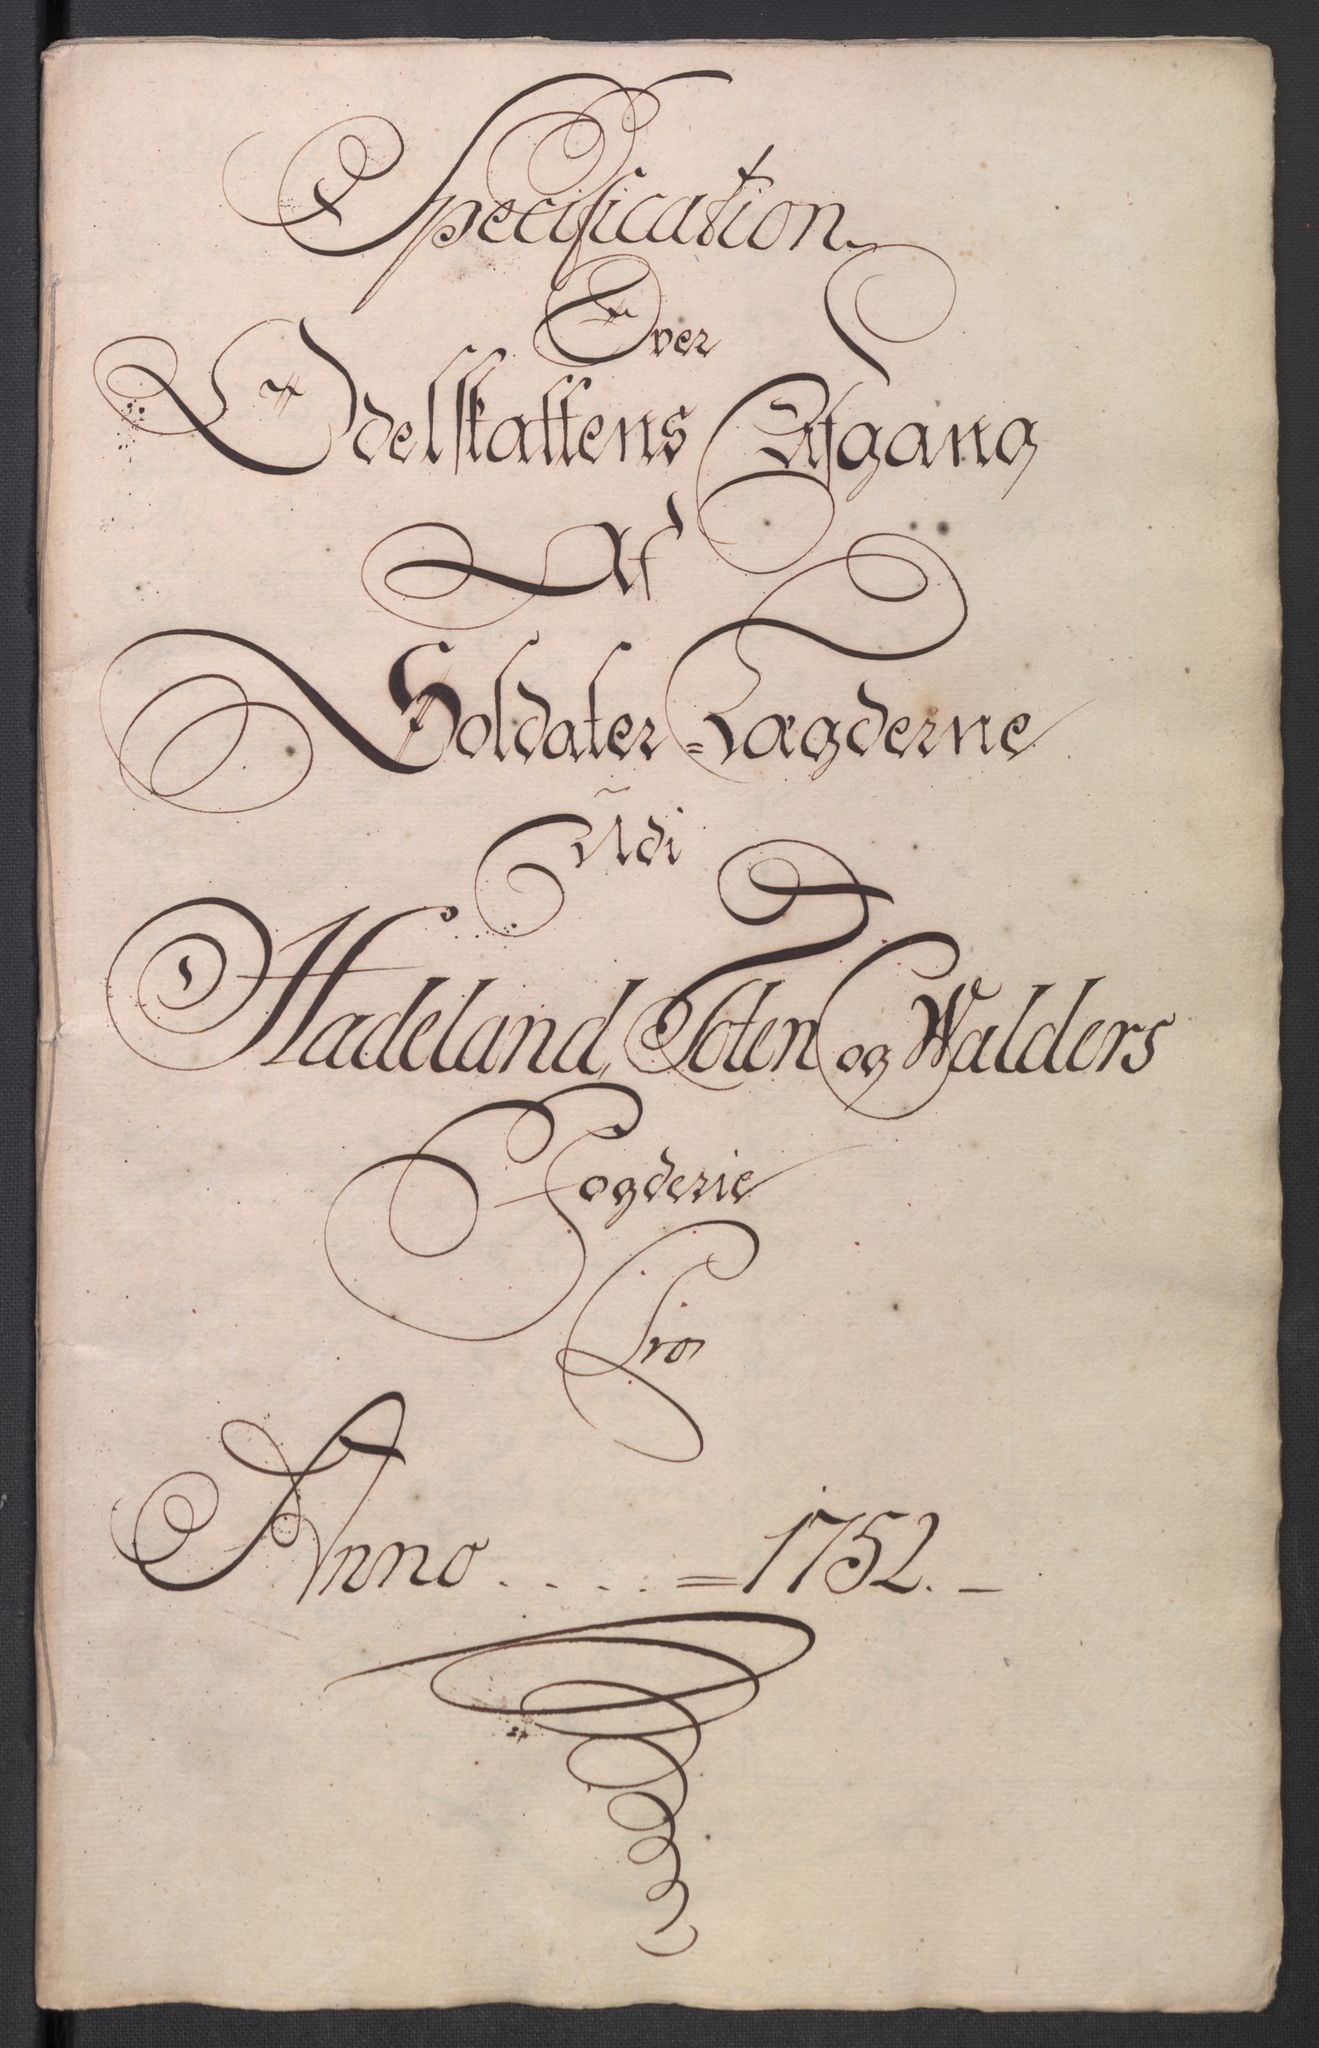 Specification
Over
Odelskattens Afgang
Af
Soldater=Lægderne
Udi
Hadeland, Toten og Walders
Fogderie
Pro
Anno . . . . = 1752. –